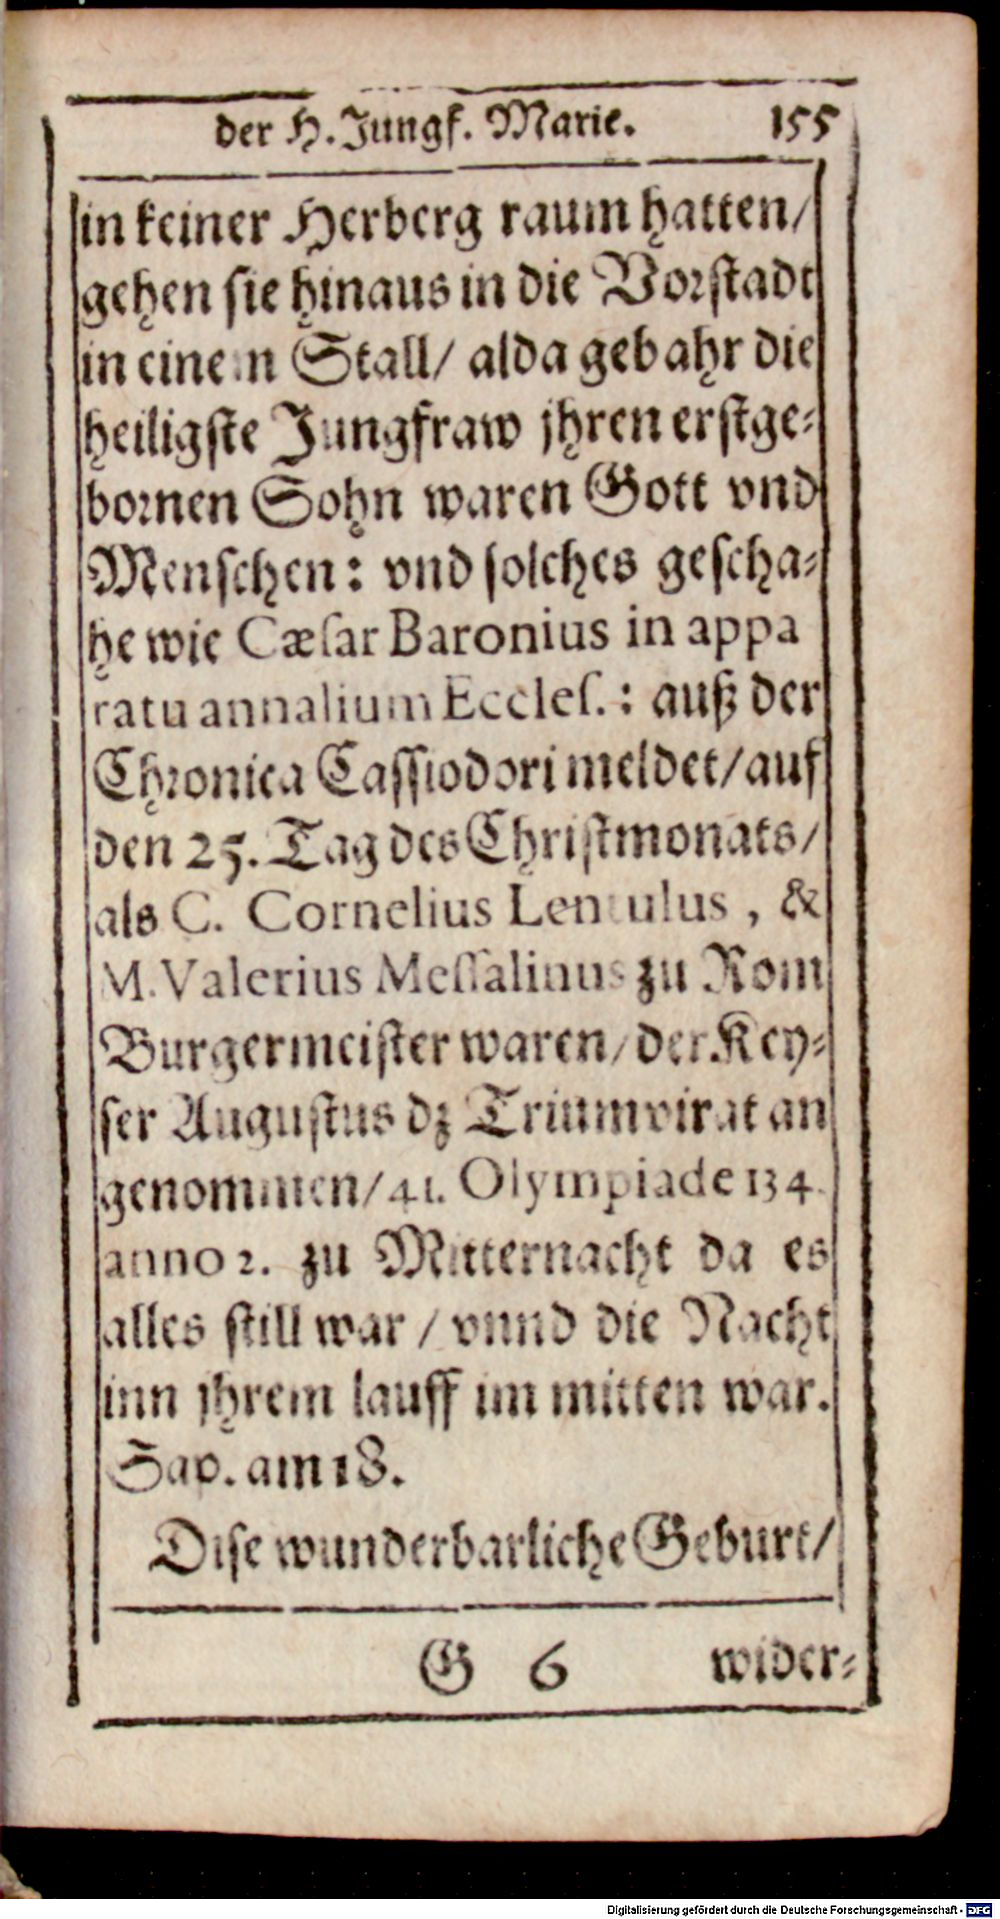 der H. Jungf. Marie. 155
in keiner Herberg raum hatten/
gehen sie hinaus in die Vorstadt
in einem Stall/ alda gebahr die
heiligste Jungfraw jhren erstge-
bornen Sohn waren Gott vnd
Menschen: vnd solches gescha-
he wie Cæsar Baronius in appa
ratu annalium Eccles.: auß der
Chronica Cassiodori meldet/ auf
den 25. Tag des Christmonats/
als C. Cornelius Lentulus, &
M. Valerius Messalinus zu Rom
Burgermeister waren/ der Key-
ser Augustus dz Triumvirat an
genommen/ 41. Olympiade 134.
anno 2. zu Mitternacht da es
alles still war / vnnd die Nacht
inn jhrem lauff im mitten war.
Sap. am 18.
Dise wunderbarliche Geburt/
G 6 wider-
Digitalisierung gefördert durch die Deutsche Forschungsgemeinschaft - DFG